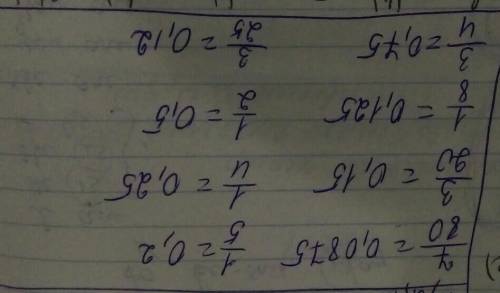 7/80 = 0,0875   1/5 = 0,2
3/20 = 0,15   1/4 = 0,25
1/8 = 0,125   1/2 = 0,5
3/4 = 0,75   3/25 = 0,12